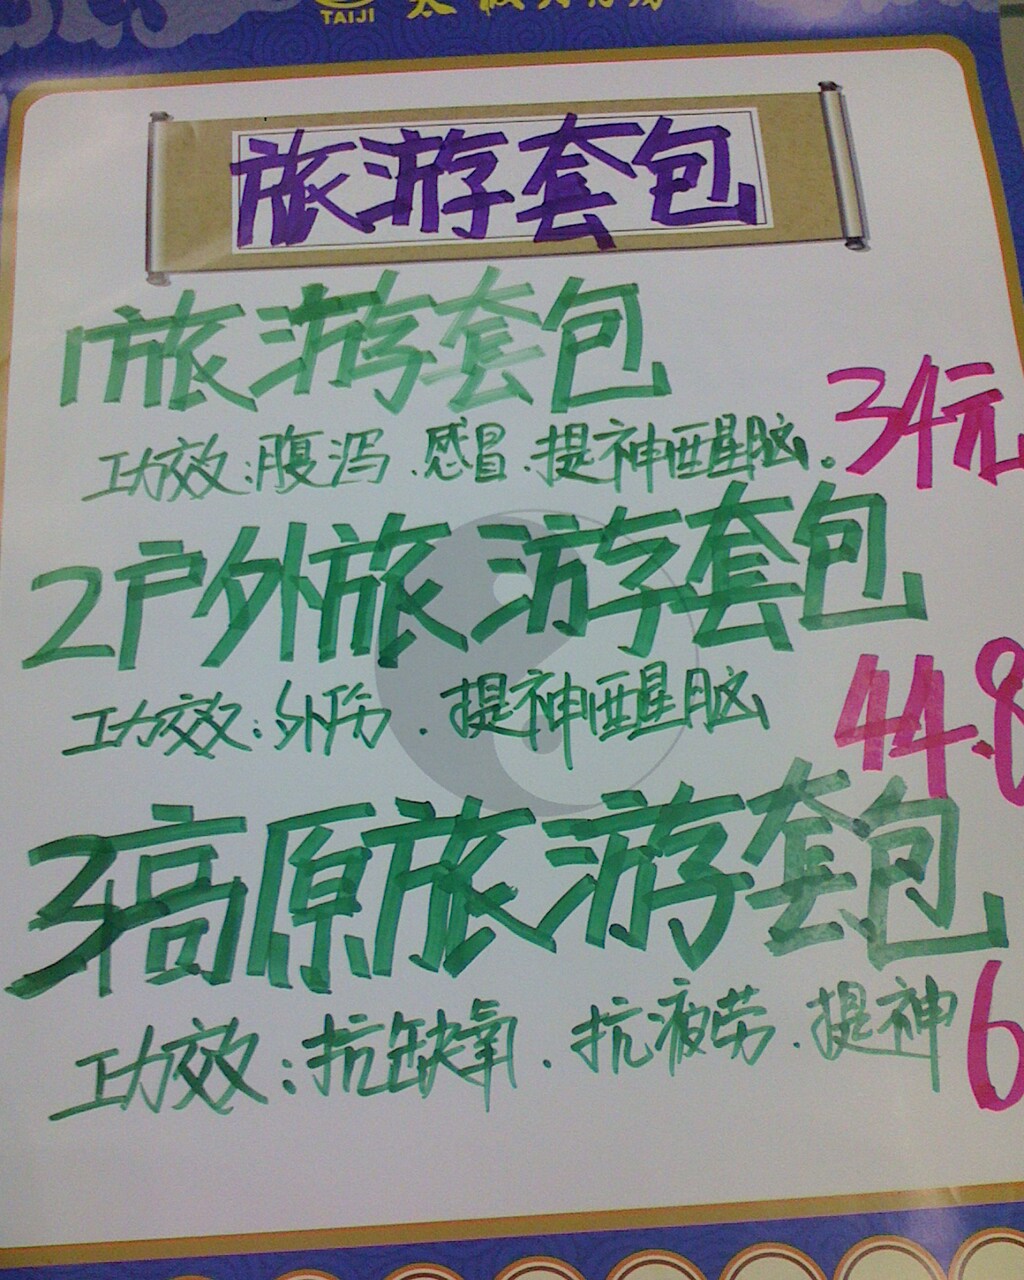 TAIJI 太极大药房
旅游套包
1旅游套包
功效:腹泻.感冒.提神醒脑。34元
2户外旅游套包
功效:外伤.提神醒脑
44.8
3高原旅游套包
功效:抗缺氧.抗疲劳.提神 6